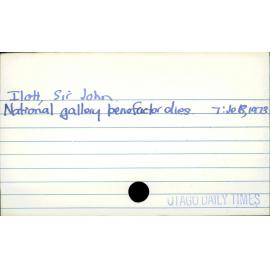 Ilott, Sir John.
National gallery benefactor dies 7: 1973
OTAGO DAILY TIMES